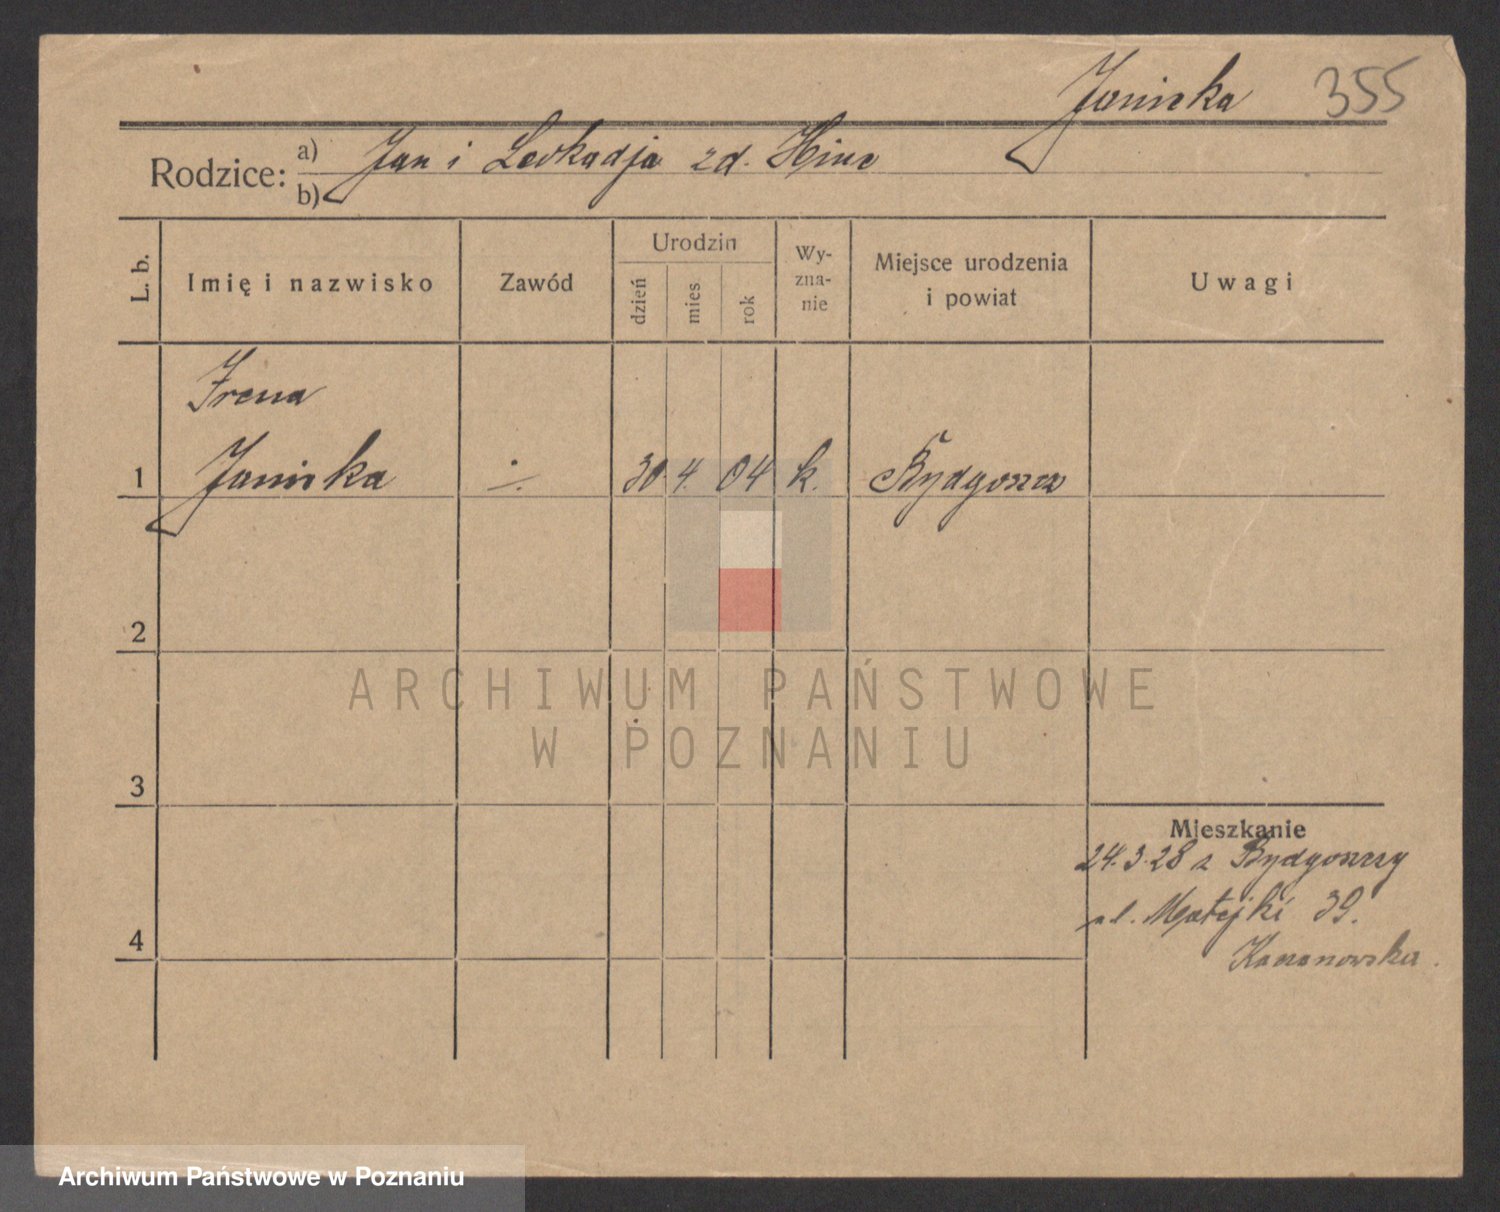 Janicka 355
Rodzice: a) Jan i Leokadja zd. Hinc
b)
L. b. Imię i nazwisko Zawód Urodzin dzień mies rok Wy-zna-nie Miejsce urodzenia i powiat Uwagi
Irena
1 Janicka ÷ 30. 4. 04 k. Bydgoszcz
2
3
4
Mieszkanie
24.3.28 z Bydgoszczy
ul. Matejki 39.
ARCHIWUM PAŃSTWOWE
W POZNANIU
Archiwum Państwowe w Poznaniu